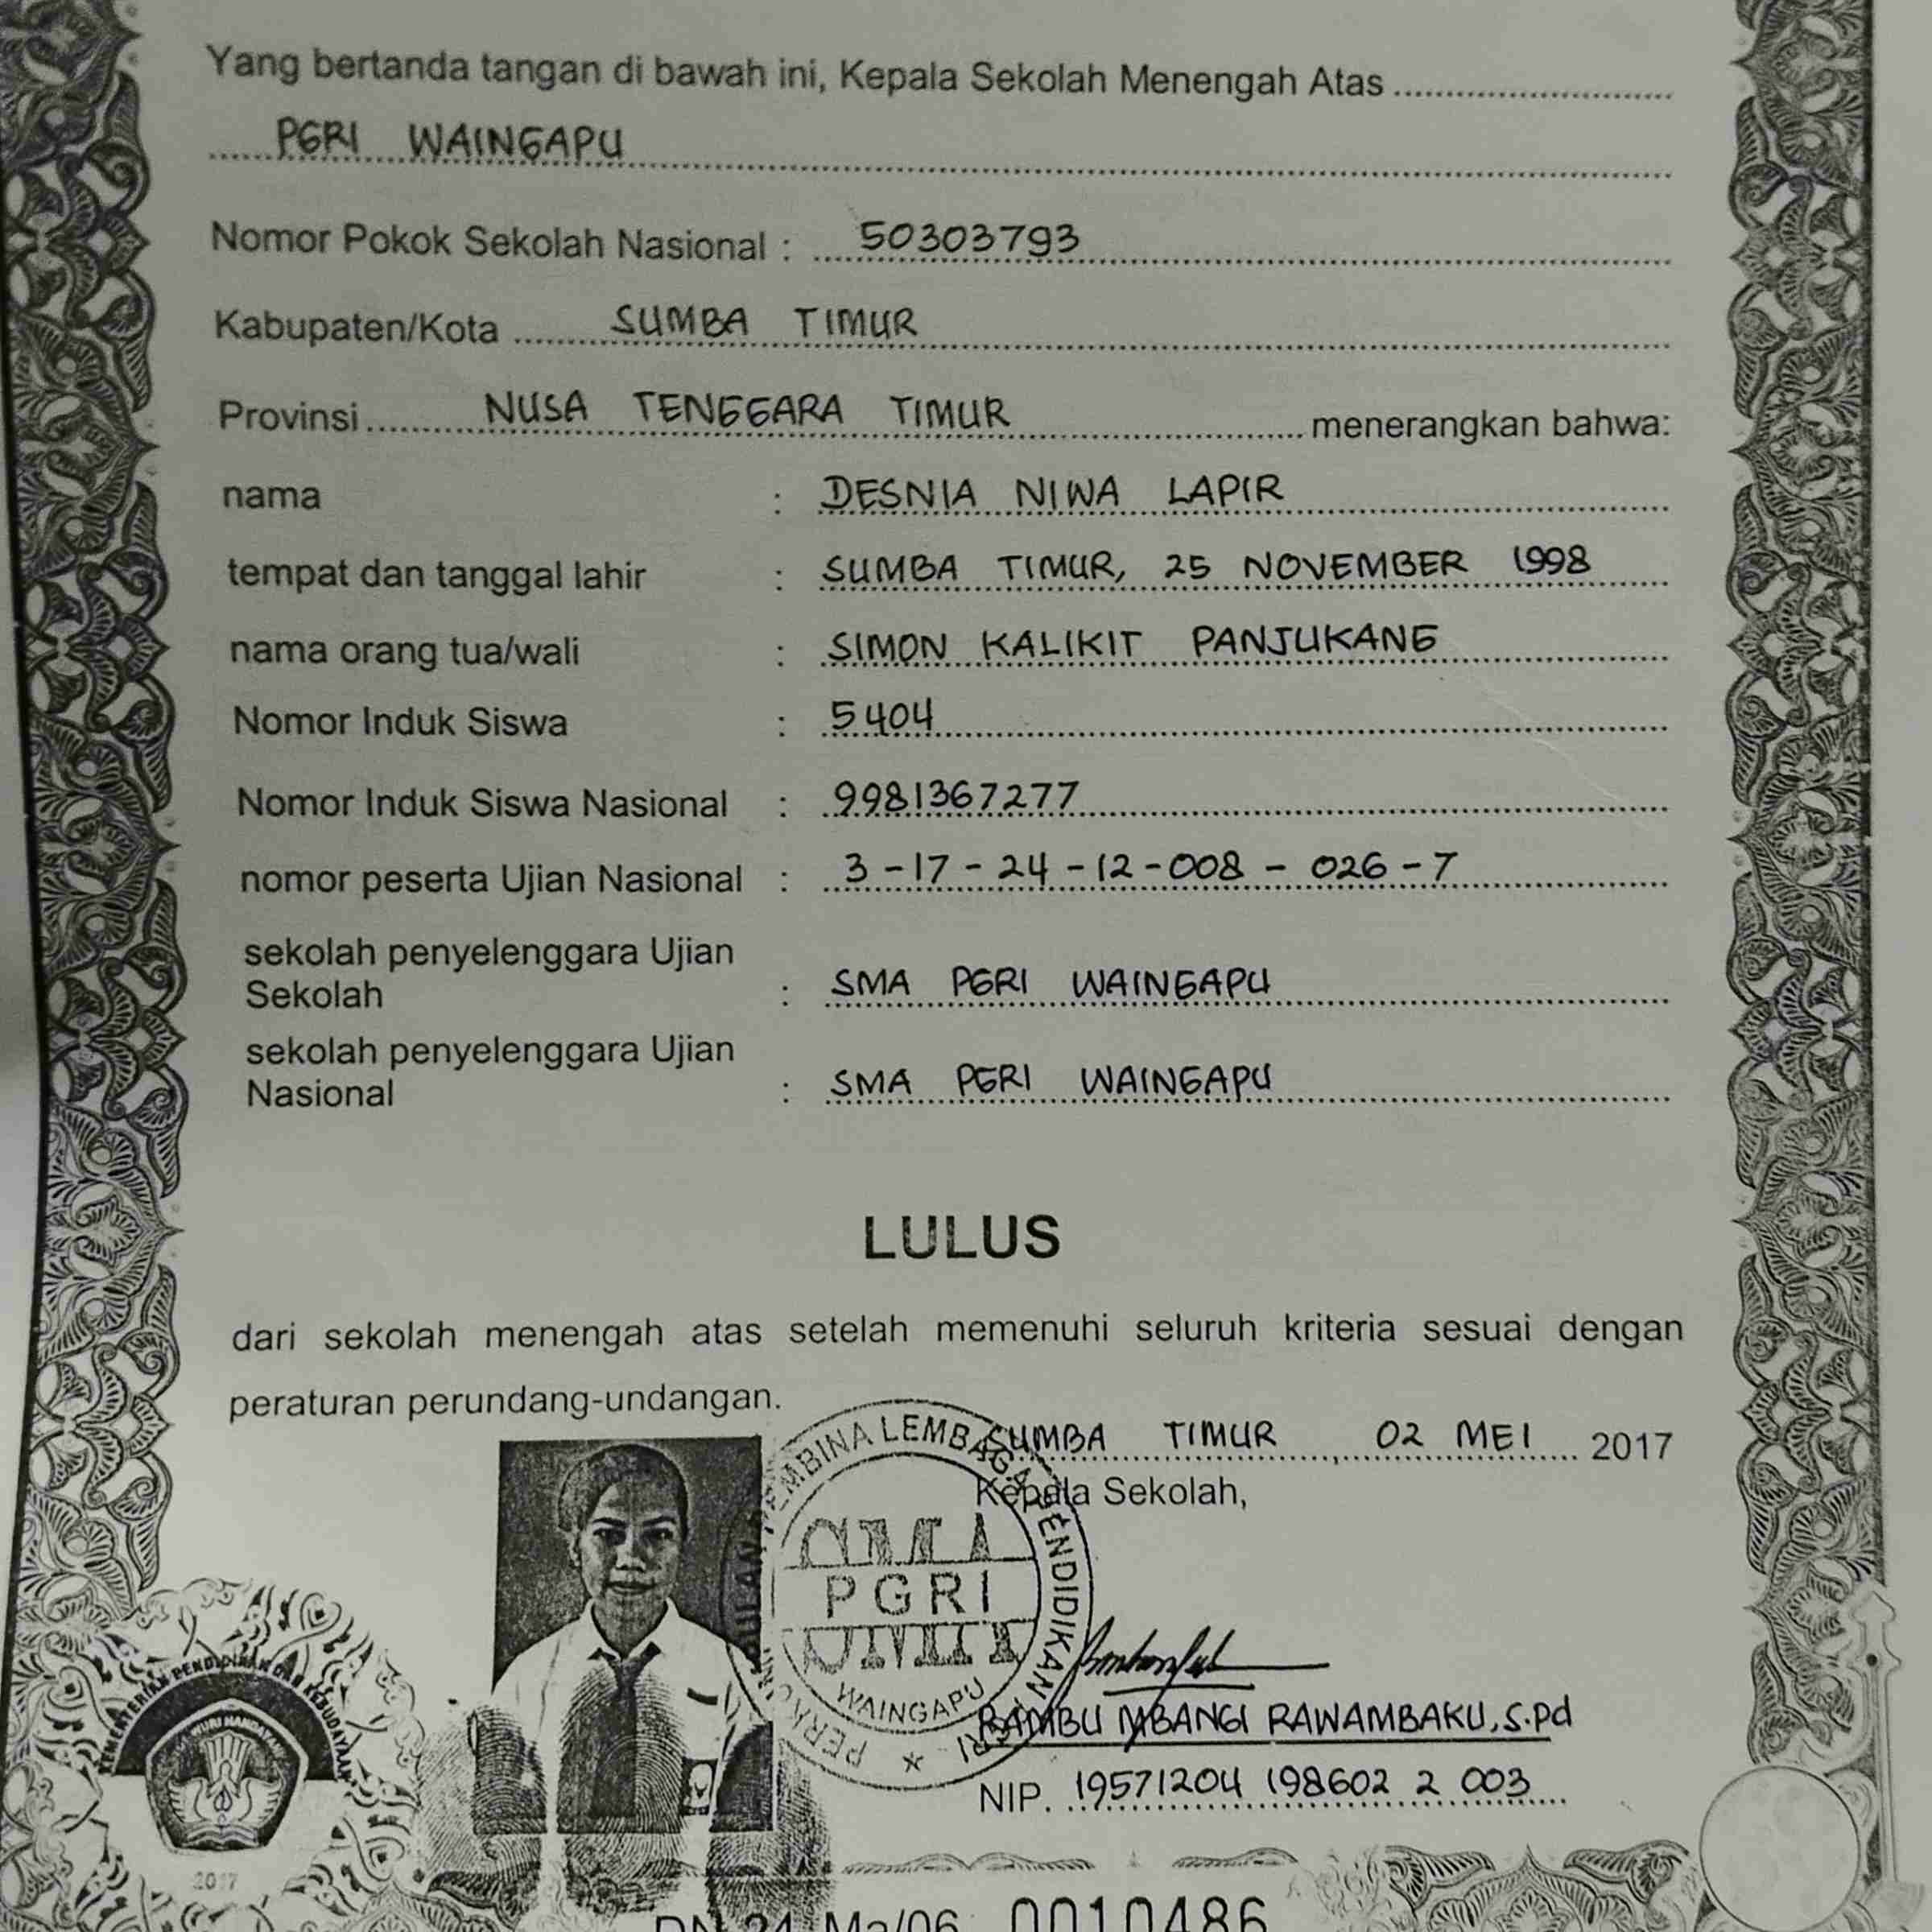 Yang bertanda tangan di bawah ini, Kepala Sekolah Menengah Atas
PGRI WAINGAPU
Nomor Pokok Sekolah Nasional : 50303793
Kabupaten/Kota SUMBA TIMUR
Provinsi NUSA TENGGARA TIMUR menerangkan bahwa:
nama : DESNIA NIWA LAPIR
tempat dan tanggal lahir : SUMBA TIMUR, 25 NOVEMBER 1998
nama orang tua/wali : SIMON KALIKIT PANJUKANG
Nomor Induk Siswa : 5404
Nomor Induk Siswa Nasional : 9981367277
nomor peserta Ujian Nasional : 3-17-24-12-008-026-7
sekolah penyelenggara Ujian
Sekolah : SMA PGRI WAINGAPU
sekolah penyelenggara Ujian
Nasional : SMA PGRI WAINGAPU
LULUS
dari sekolah menengah atas setelah memenuhi seluruh kriteria sesuai dengan
peraturan perundang-undangan.
SUMBA TIMUR, 02 MEI 2017
Kepala Sekolah,
PEMBINA LEMBAGA PENDIDIKAN
SMA
PGRI
WAINGAPU
RAMBU MBANGI RAWAMBAKU, S.Pd
NIP. 19571204 198602 2 003
KEMENTERIAN PENDIDIKAN DAN KEBUDAYAAN
TUT WURI HANDAYANI
2017
DN-24 Ma/06 0010486